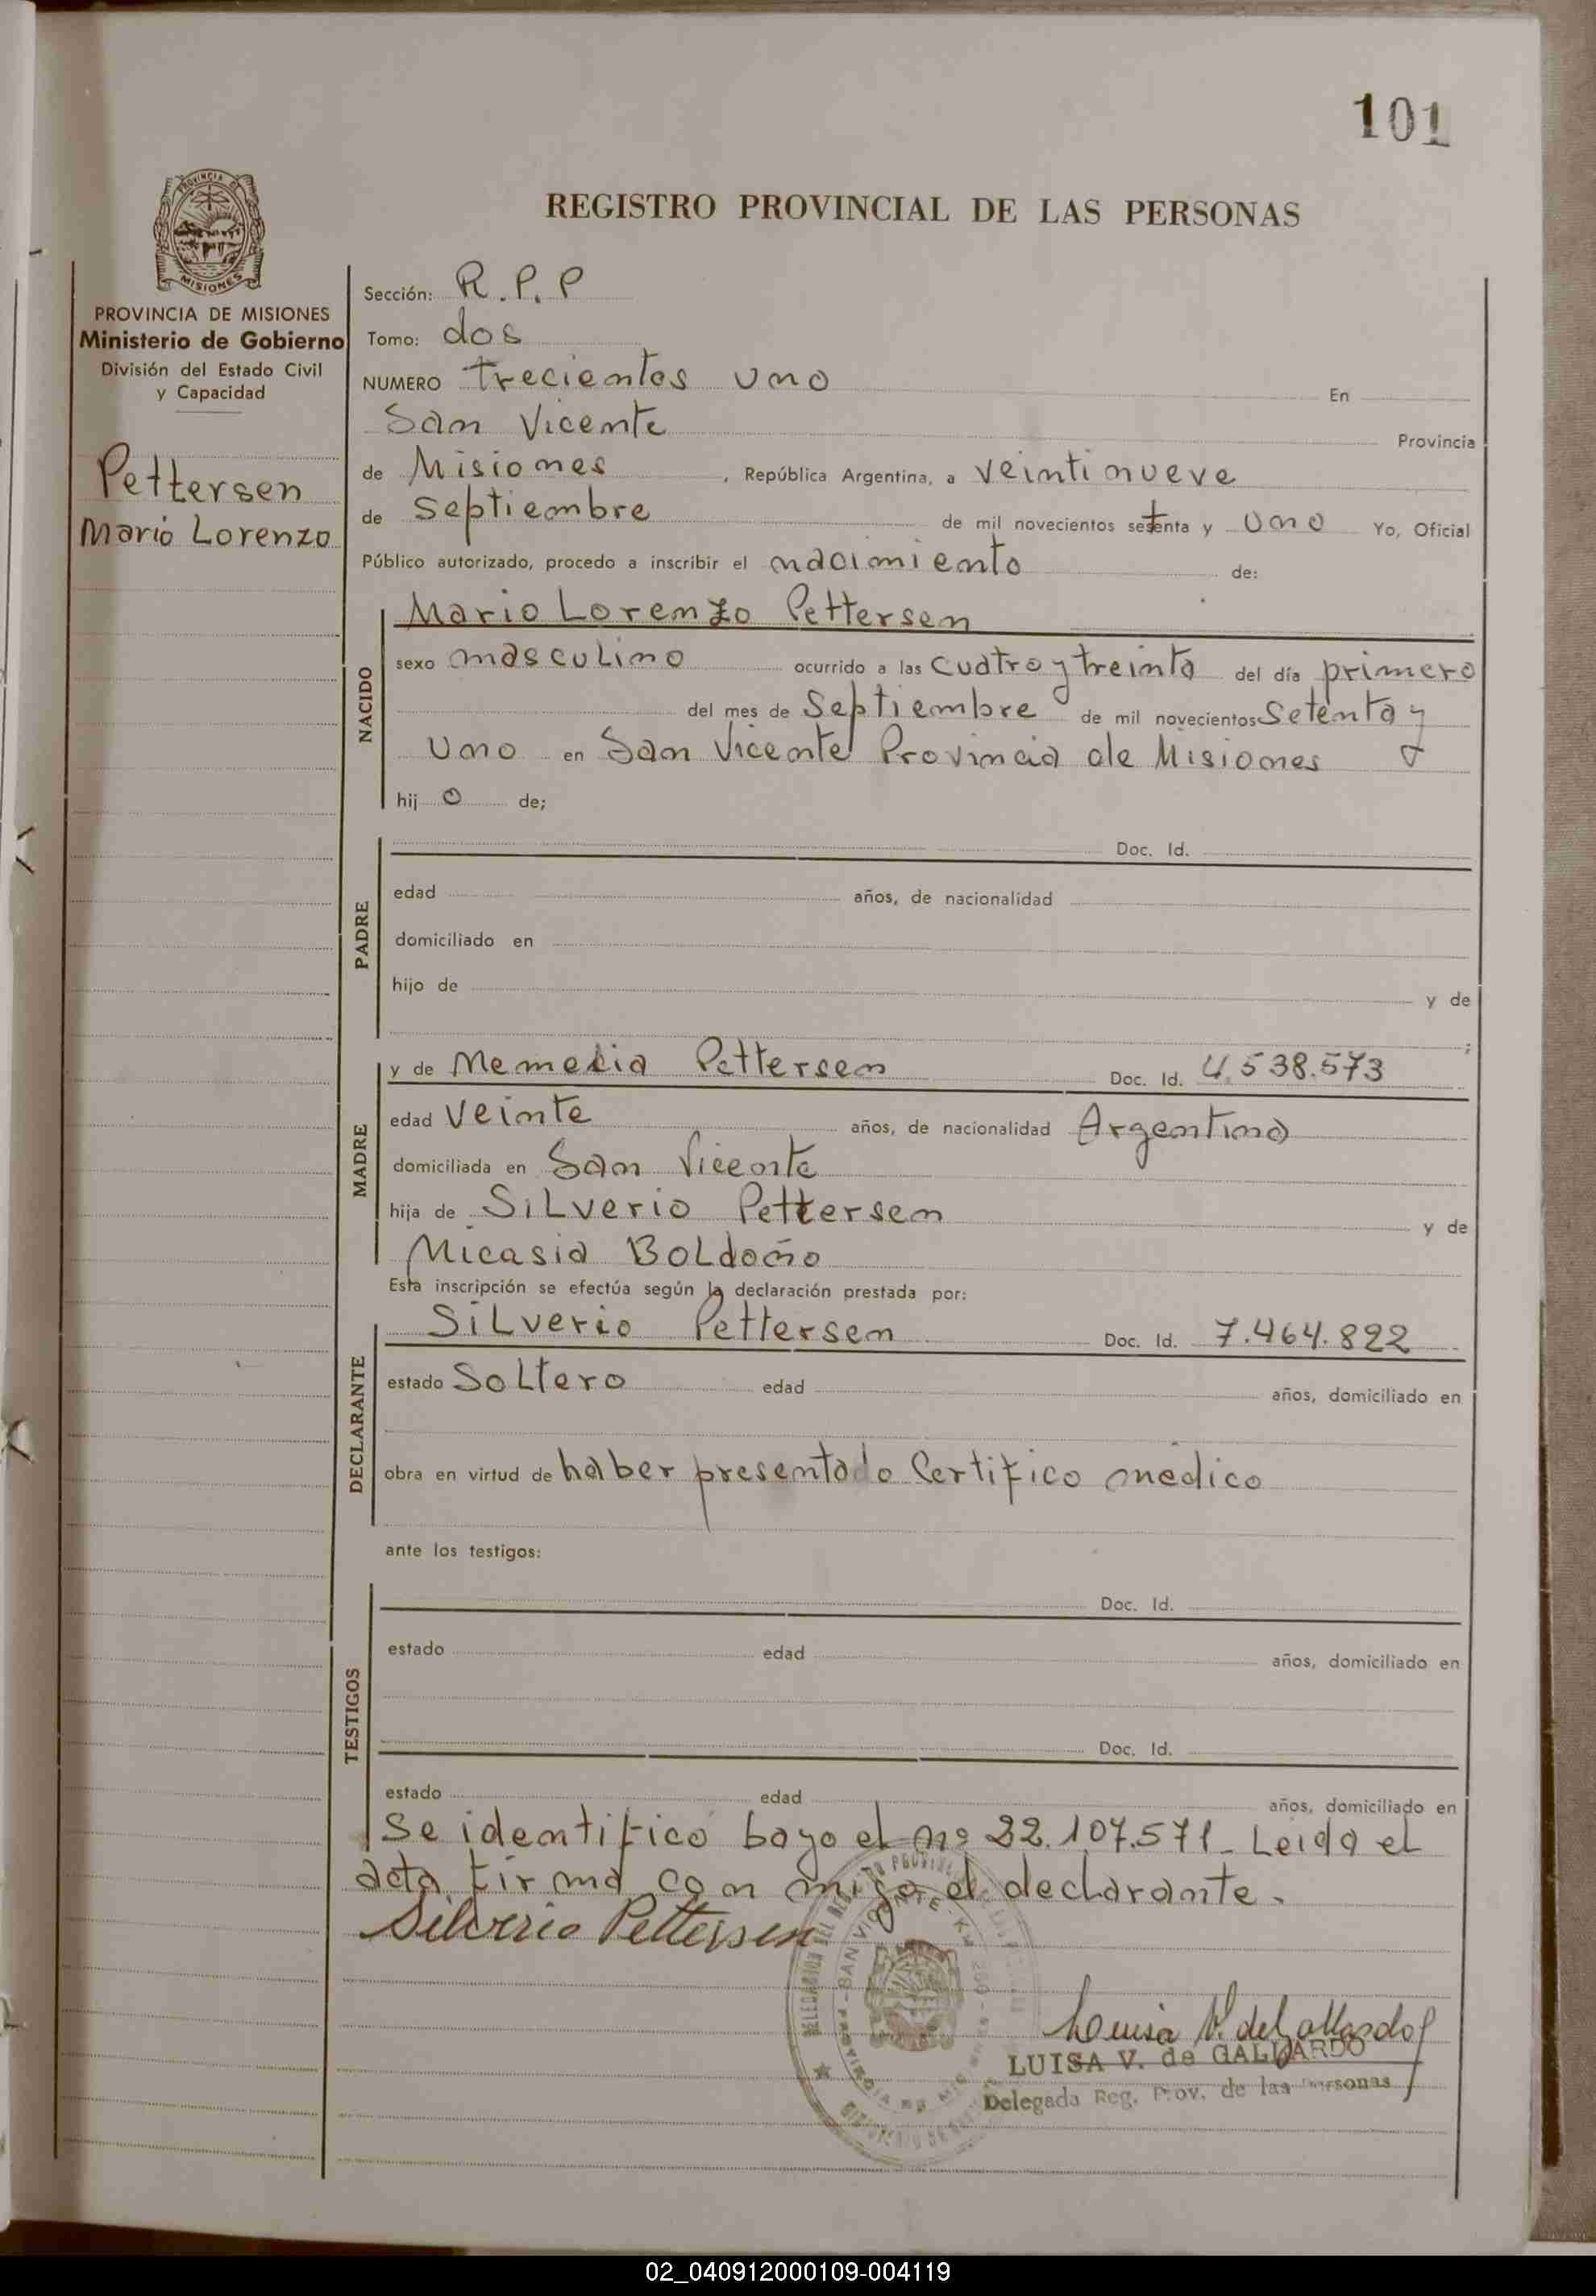 101
PROVINCIA DE
MISIONES
REGISTRO PROVINCIAL DE LAS PERSONAS
PROVINCIA DE MISIONES
Ministerio de Gobierno
División del Estado Civil
y Capacidad
Pettersen
Mario Lorenzo
Sección: R.P.P
Tomo: dos
NUMERO trecientos uno En
San Vicente Provincia
de Misiones, República Argentina, a veintinueve
de septiembre de mil novecientos setenta y uno Yo, Oficial
Público autorizado, procedo a inscribir el nacimiento de:
NACIDO
Mario Lorenzo Pettersen
sexo masculino ocurrido a las cuatro y treinta del día primero
del mes de Septiembre de mil novecientos setenta y
uno en San Vicente Provincia de Misiones
hijo de;
PADRE
Doc. Id.
edad años, de nacionalidad
domiciliado en
hijo de y de
;
MADRE
y de Nemecia Pettersen Doc. Id. 4.538.573
edad veinte años, de nacionalidad Argentina
domiciliada en San Vicente
hija de Silverio Pettersen y de
Micasia
Esta inscripción se efectúa según la declaración prestada por:
DECLARANTE
Silverio Pettersen Doc. Id. 7.464.822
estado Soltero edad años, domiciliado en
obra en virtud de haber presentado Certifico médico
ante los testigos:
TESTIGOS
Doc. Id.
estado edad años, domiciliado en
Doc. Id.
estado edad años, domiciliado en
Se identificó bayo el nº 22.107.571_ Leida el
acta firma con migo el declarante.
Silverio Pettersen
Luisa V. de Gallardo
LUISA V. de GALLARDO
Delegada Reg. Prov. de las Personas
02_040912000109-004119